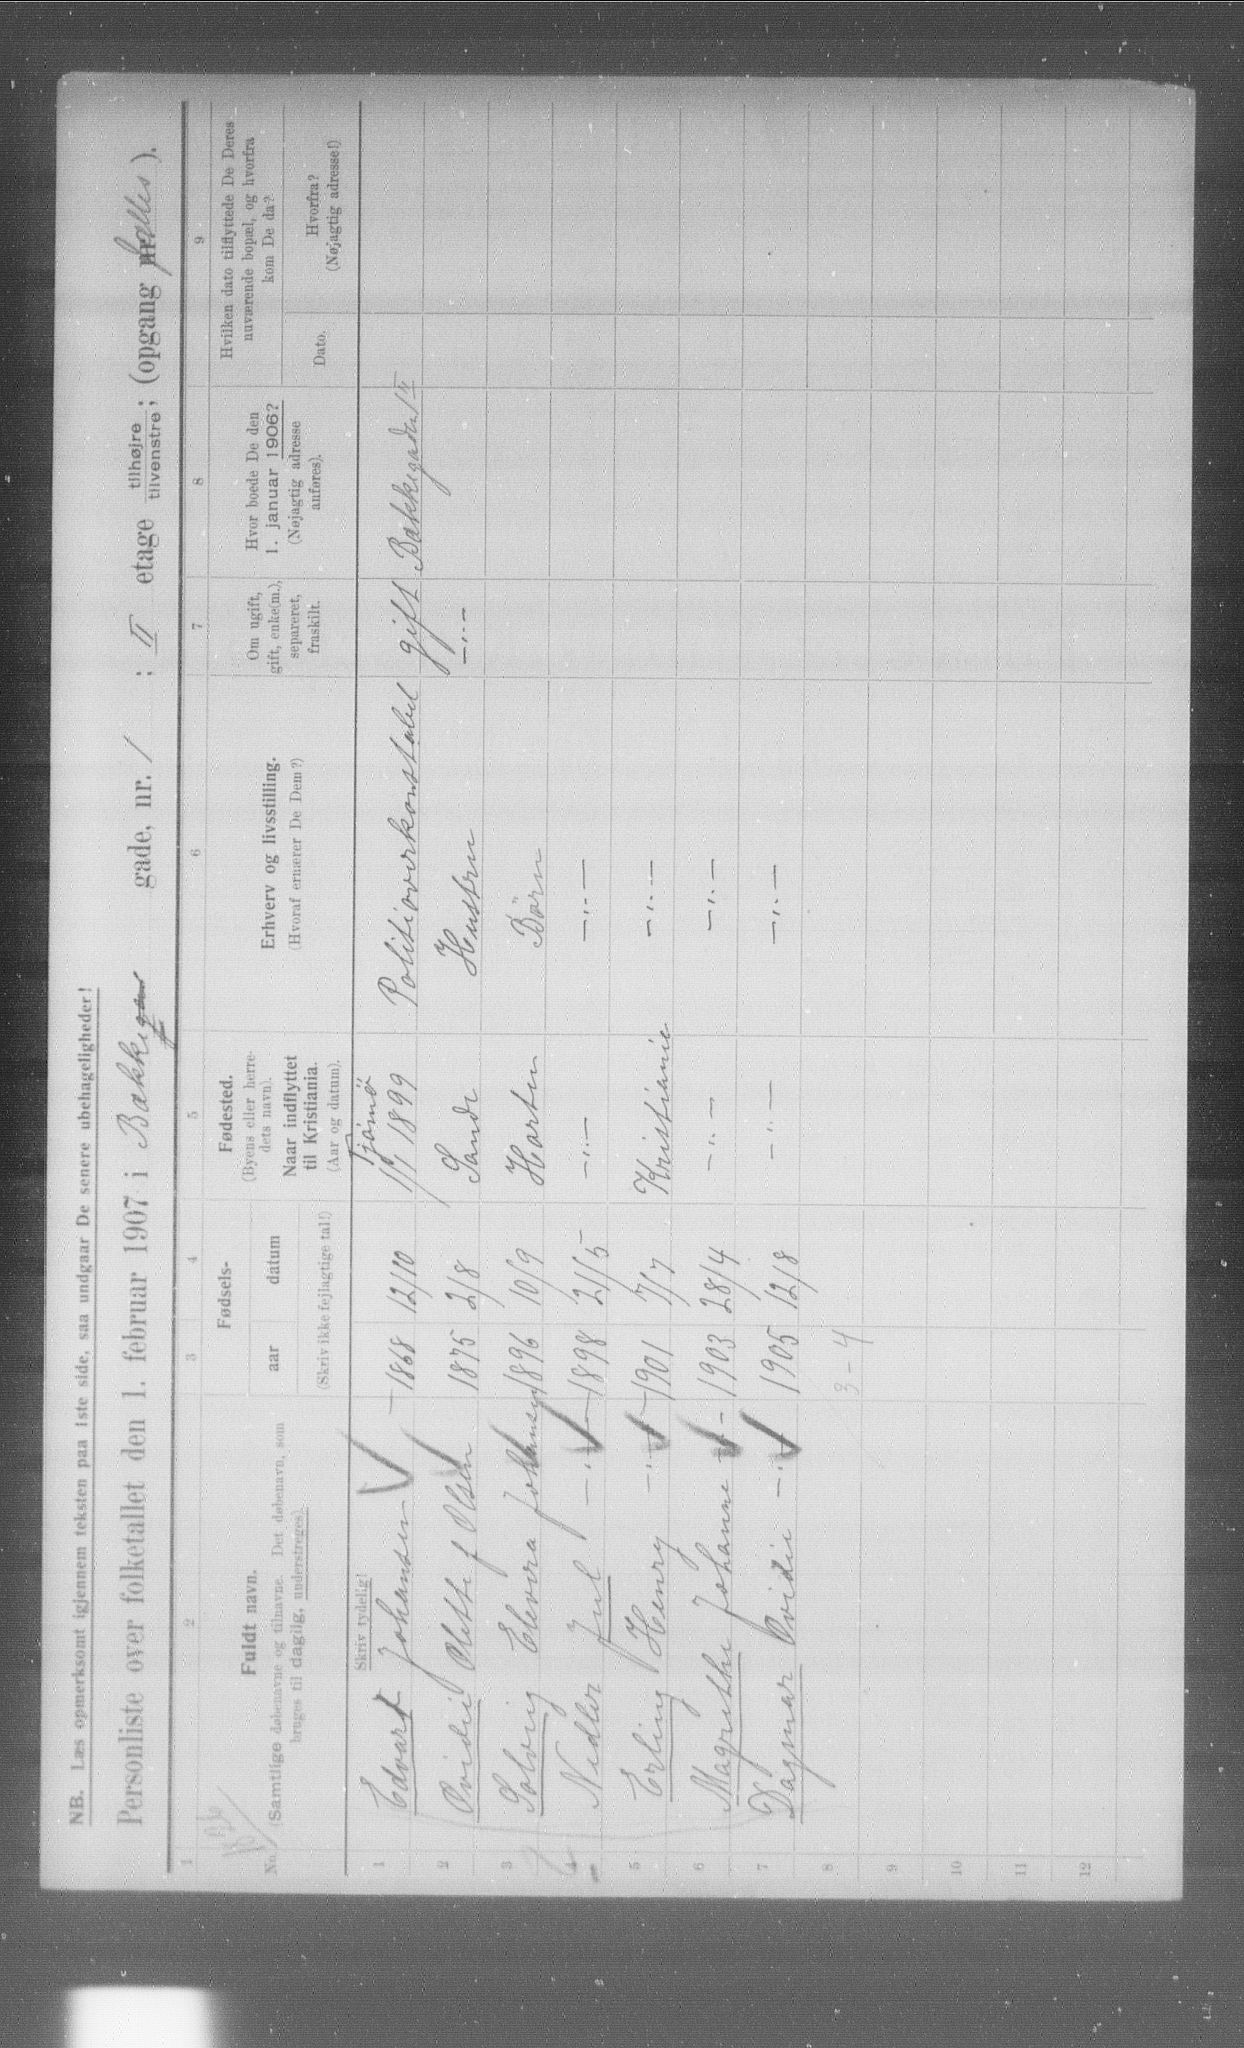 NB. Læs opmerksomt igjennem teksten paa 1ste side, saa undgaar De senere ubehageligheder!
Personliste over folketallet den 1. februar 1907 i Bakkegaden gade, nr. 1 ; II etage tilhøjre tilvenstre; (opgang nr. fælles).
1 2 3 4 5 6 7 8 9
No. Fuldt navn. (Samtlige døbenavne og tilnavne. Det døbenavn, som bruges til daglig, understreges).
Fødsels- aar datum (Skriv ikke fejlagtige tal!)
Fødested. (Byens eller herredets navn). Naar indflyttet til Kristiania. (Aar og datum).
Erhverv og livsstilling. (Hvoraf ernærer De Dem?)
Om ugift, gift, enke(m.), separeret, fraskilt.
Hvor boede De den 1. januar 1906? (Nøjagtig adresse anføres).
Hvilken dato tilflyttede De Deres nuværende bopæl, og hvorfra kom De da?
Dato. Hvorfra? (Nøjagtig adresse!)
Skriv tydelig!
1 Edvart Johansen 1868 12/10 Tjømø 1/1 1899 Politioverkonstabel gift Bakkegaden 1 II
2 Ovidie Olette f Olsen 1875 2/8 Sande Hustru -"-
3 Solveig Elevera Johansen 1896 10/9 Horten Börn
4 Nidler Jul -"- 1898 21/5 -"- -"-
5 Erling Henry -"- 1901 7/7 Kristiania -"-
6 Magrethe Johanne -"- 1903 28/4 -"- -"-
7 Dagmar Ovidie -"- 1905 12/8 -"- -"-
8 3-4
9
10
11
12